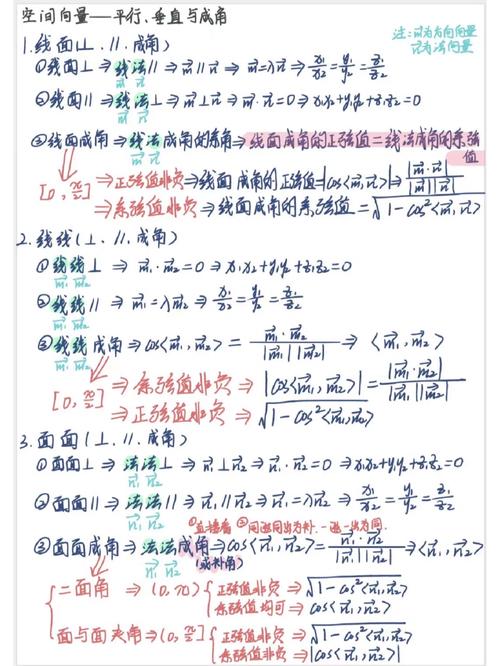 空间向量——平行、垂直与成角
注:m⃗为方向向量
n⃗为法向量
1.线面(⊥、∥、成角)
①线面⊥⇒线法∥⇒m⃗∥n⃗⇒m⃗=λn⃗⇒x₁/x₂=y₁/y₂=z₁/z₂
m⃗ n⃗
②线面∥⇒线法⊥⇒m⃗⊥n⃗⇒m⃗·n⃗=0⇒x₁x₂+y₁y₂+z₁z₂=0
m⃗ n⃗
③线面成角⇒线法成角的余角⇒线面成角的正弦值=线法成角的余弦值
m⃗ n⃗
[0,π/2]⇒正弦值非负⇒线面成角的正弦值=|cos<m⃗,n⃗>|⇒|m⃗·n⃗|/|m⃗||n⃗|
⇒余弦值非负⇒线面成角的余弦值=√1-cos²<m⃗,n⃗>
2.线线(⊥、∥、成角)
①线线⊥⇒m⃗₁·m⃗₂=0⇒x₁x₂+y₁y₂+z₁z₂=0
m⃗₁ m⃗₂
②线线∥⇒m⃗₁=λm⃗₂⇒x₁/x₂=y₁/y₂=z₁/z₂
m⃗₁ m⃗₂
③线线成角⇒cos<m⃗₁,m⃗₂>=m⃗₁·m⃗₂/|m⃗₁||m⃗₂|⇒<m⃗₁,m⃗₂>
m⃗₁ m⃗₂
[0,π/2]⇒余弦值非负⇒|cos<m⃗₁,m⃗₂>|=|m⃗₁·m⃗₂|/|m⃗₁||m⃗₂|
⇒正弦值非负⇒√1-cos²<m⃗₁,m⃗₂>
3.面面(⊥、∥、成角)
①面面⊥⇒法法⊥⇒n⃗₁⊥n⃗₂⇒n⃗₁·n⃗₂=0⇒x₁x₂+y₁y₂+z₁z₂=0
n⃗₁ n⃗₂
②面面∥⇒法法∥⇒n⃗₁∥n⃗₂⇒n⃗₁=λn⃗₂⇒x₁/x₂=y₁/y₂=z₁/z₂
n⃗₁ n⃗₂
①直接看 ②同进同出为补,一进一出为同
③面面成角⇒法法成角⇒cos<n⃗₁,n⃗₂>=n⃗₁·n⃗₂/|n⃗₁||n⃗₂|⇒<n⃗₁,n⃗₂>
n⃗₁ n⃗₂ (或补角)
二面角⇒(0,π){正弦值非负⇒√1-cos²<n⃗₁,n⃗₂>
余弦值均可⇒cos<n⃗₁,n⃗₂>
面与面夹角⇒(0,π/2]{正弦值非负⇒√1-cos²<n⃗₁,n⃗₂>
余弦值非负⇒|cos<n⃗₁,n⃗₂>|